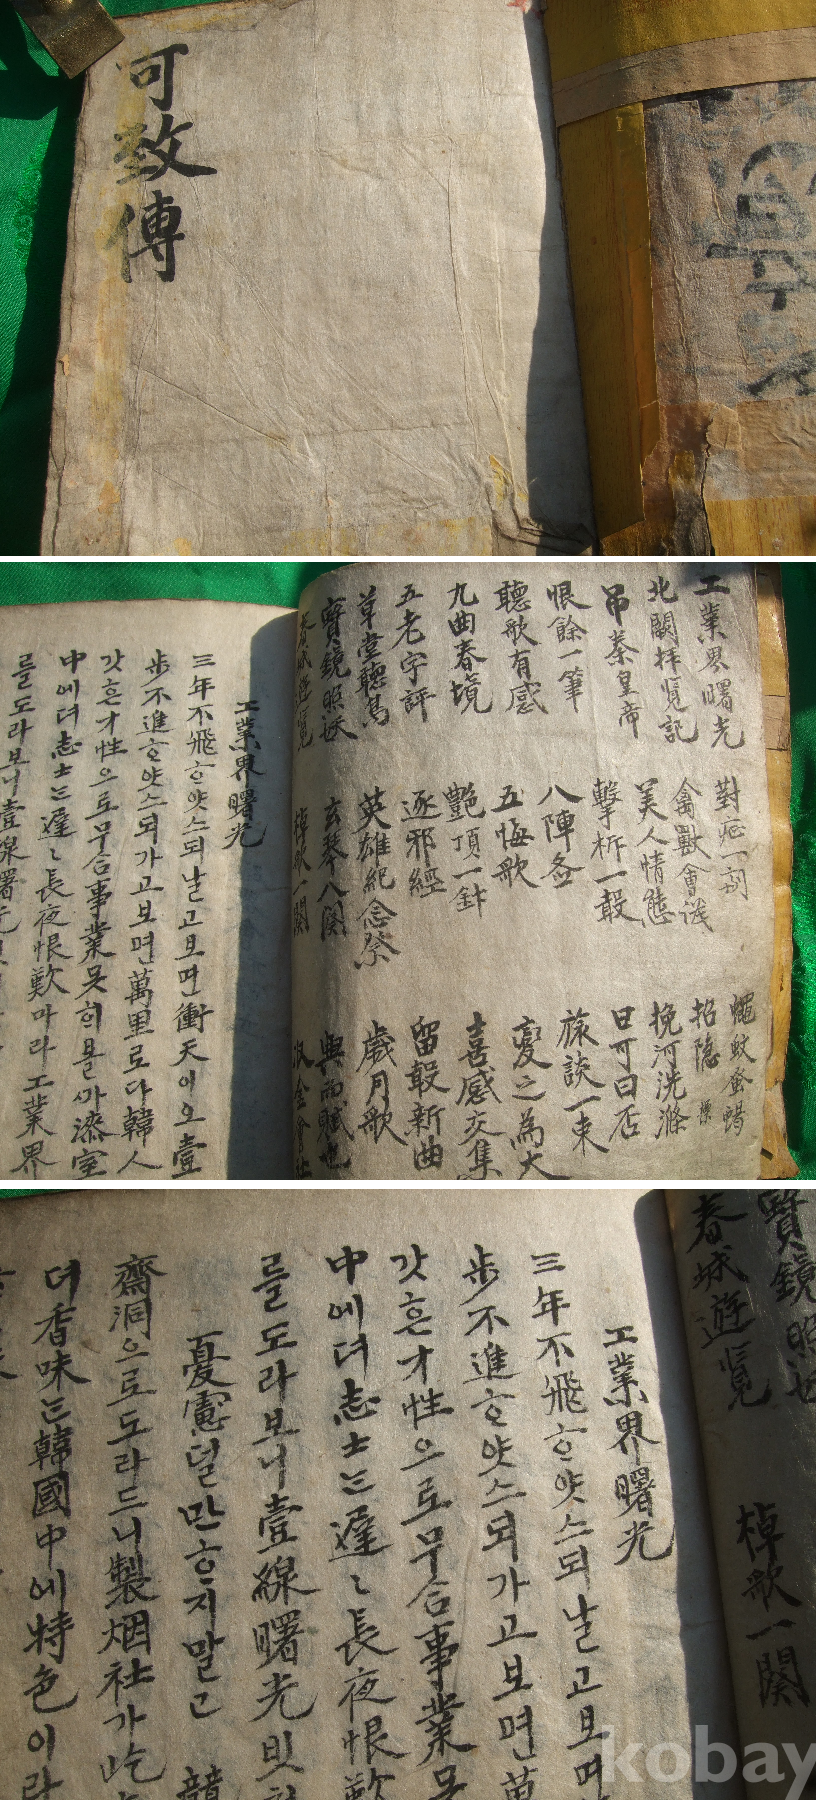 可致傳
工業界曙光
北闕拜覽記
吊秦皇帝
恨餘一筆
聽歌有感
九曲春境
五老字評
草堂聽鳥
寶鏡照
春城遊覽
對症一劑
禽獸會議
美人情態
擊柝一
八陣
五悔歌
艶項一
逐邪經
英雄紀念祭
玄琴八
棹歌一闋
蠅蚊蚤蝎
招隱操
挽河洗滌
曰可曰否
旅談一束
變之為大
喜感交集
留聲新曲
歲月歌
興而賦也
工業界曙光
三年不飛ᄒᆞ얏스되날고보면衝天이오壹
步不進ᄒᆞ얏스되가고보면萬里로다韓人
갓흔才性으로무合事業못희볼ᄭᅡ漆室
中에뎌志士ᄂᆞᆫ遲〻長夜恨歎마라工業界
를도라보니壹線曙光
春城遊覽
寶鏡照
棹歌一闋
工業界曙光
三年不飛ᄒᆞ얏스되날고보면
步不進ᄒᆞ얏스되가고보면萬
갓흔才性으로무合事業못
中에뎌志士ᄂᆞᆫ遲〻長夜恨歎
를도라보니壹線曙光빗
憂慮덜만ᄒᆞ지말고
齋洞으로도라드니製烟社가屹
뎌香味ᄂᆞᆫ韓國中에特色이라
kobay